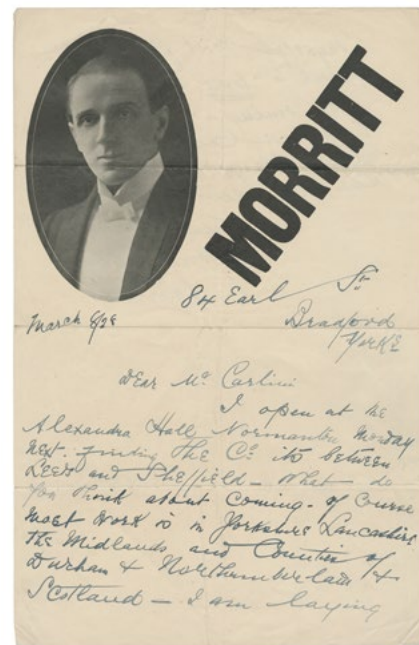 MORRITT
84 Earl St
Bradford
Yorks
March 8/28
Dear Mr. Carlini
I open at the
Alexandra Hall Normanton Monday
next. the Co. its between
Leeds and Sheffield - What do
you think about coming - of course
most work is in Yorkshire Lancashire
The Midlands and Counties of
Durham & Northumberland &
Scotland - I am laying